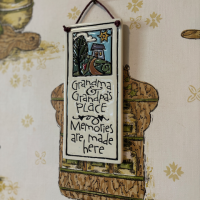 Grandma
& Grandpa's
PLACE
Memories
are made
here